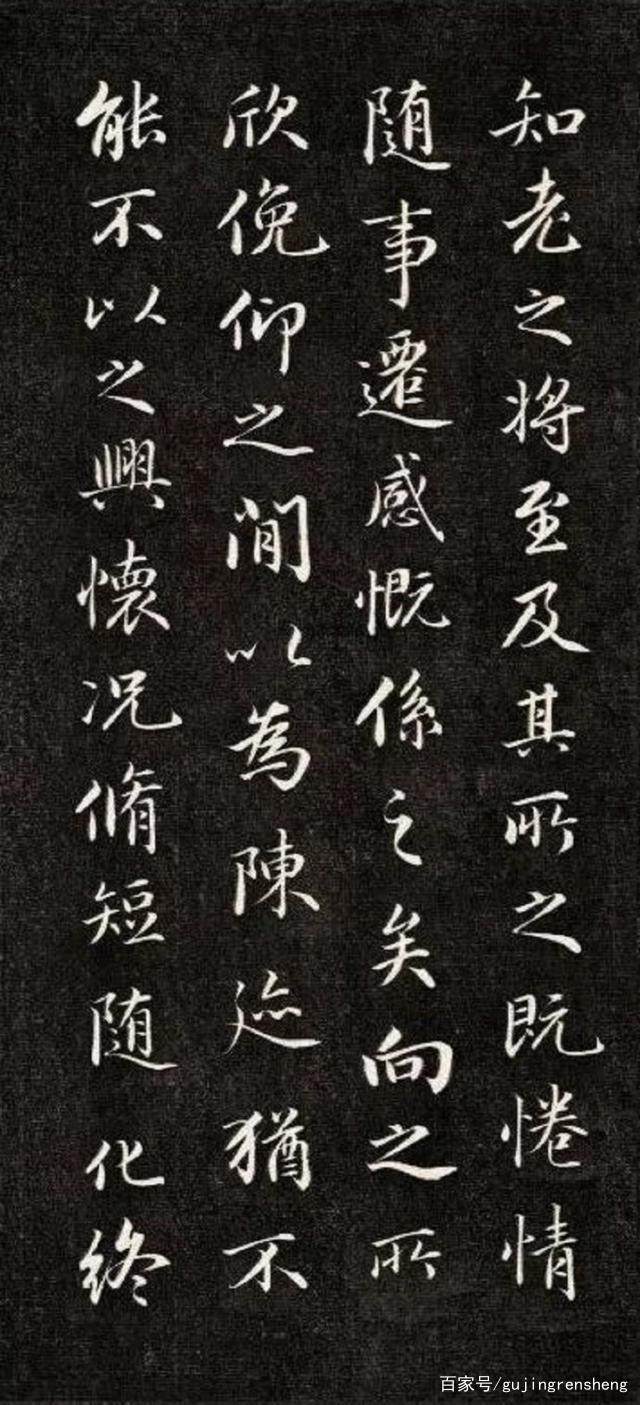 知老之將至及其所之既惓情
随事遷感慨係之矣向之所
欣俛仰之閒以為陳迹猶不
能不以之興懷况脩短随化終
百家号/gujingrensheng